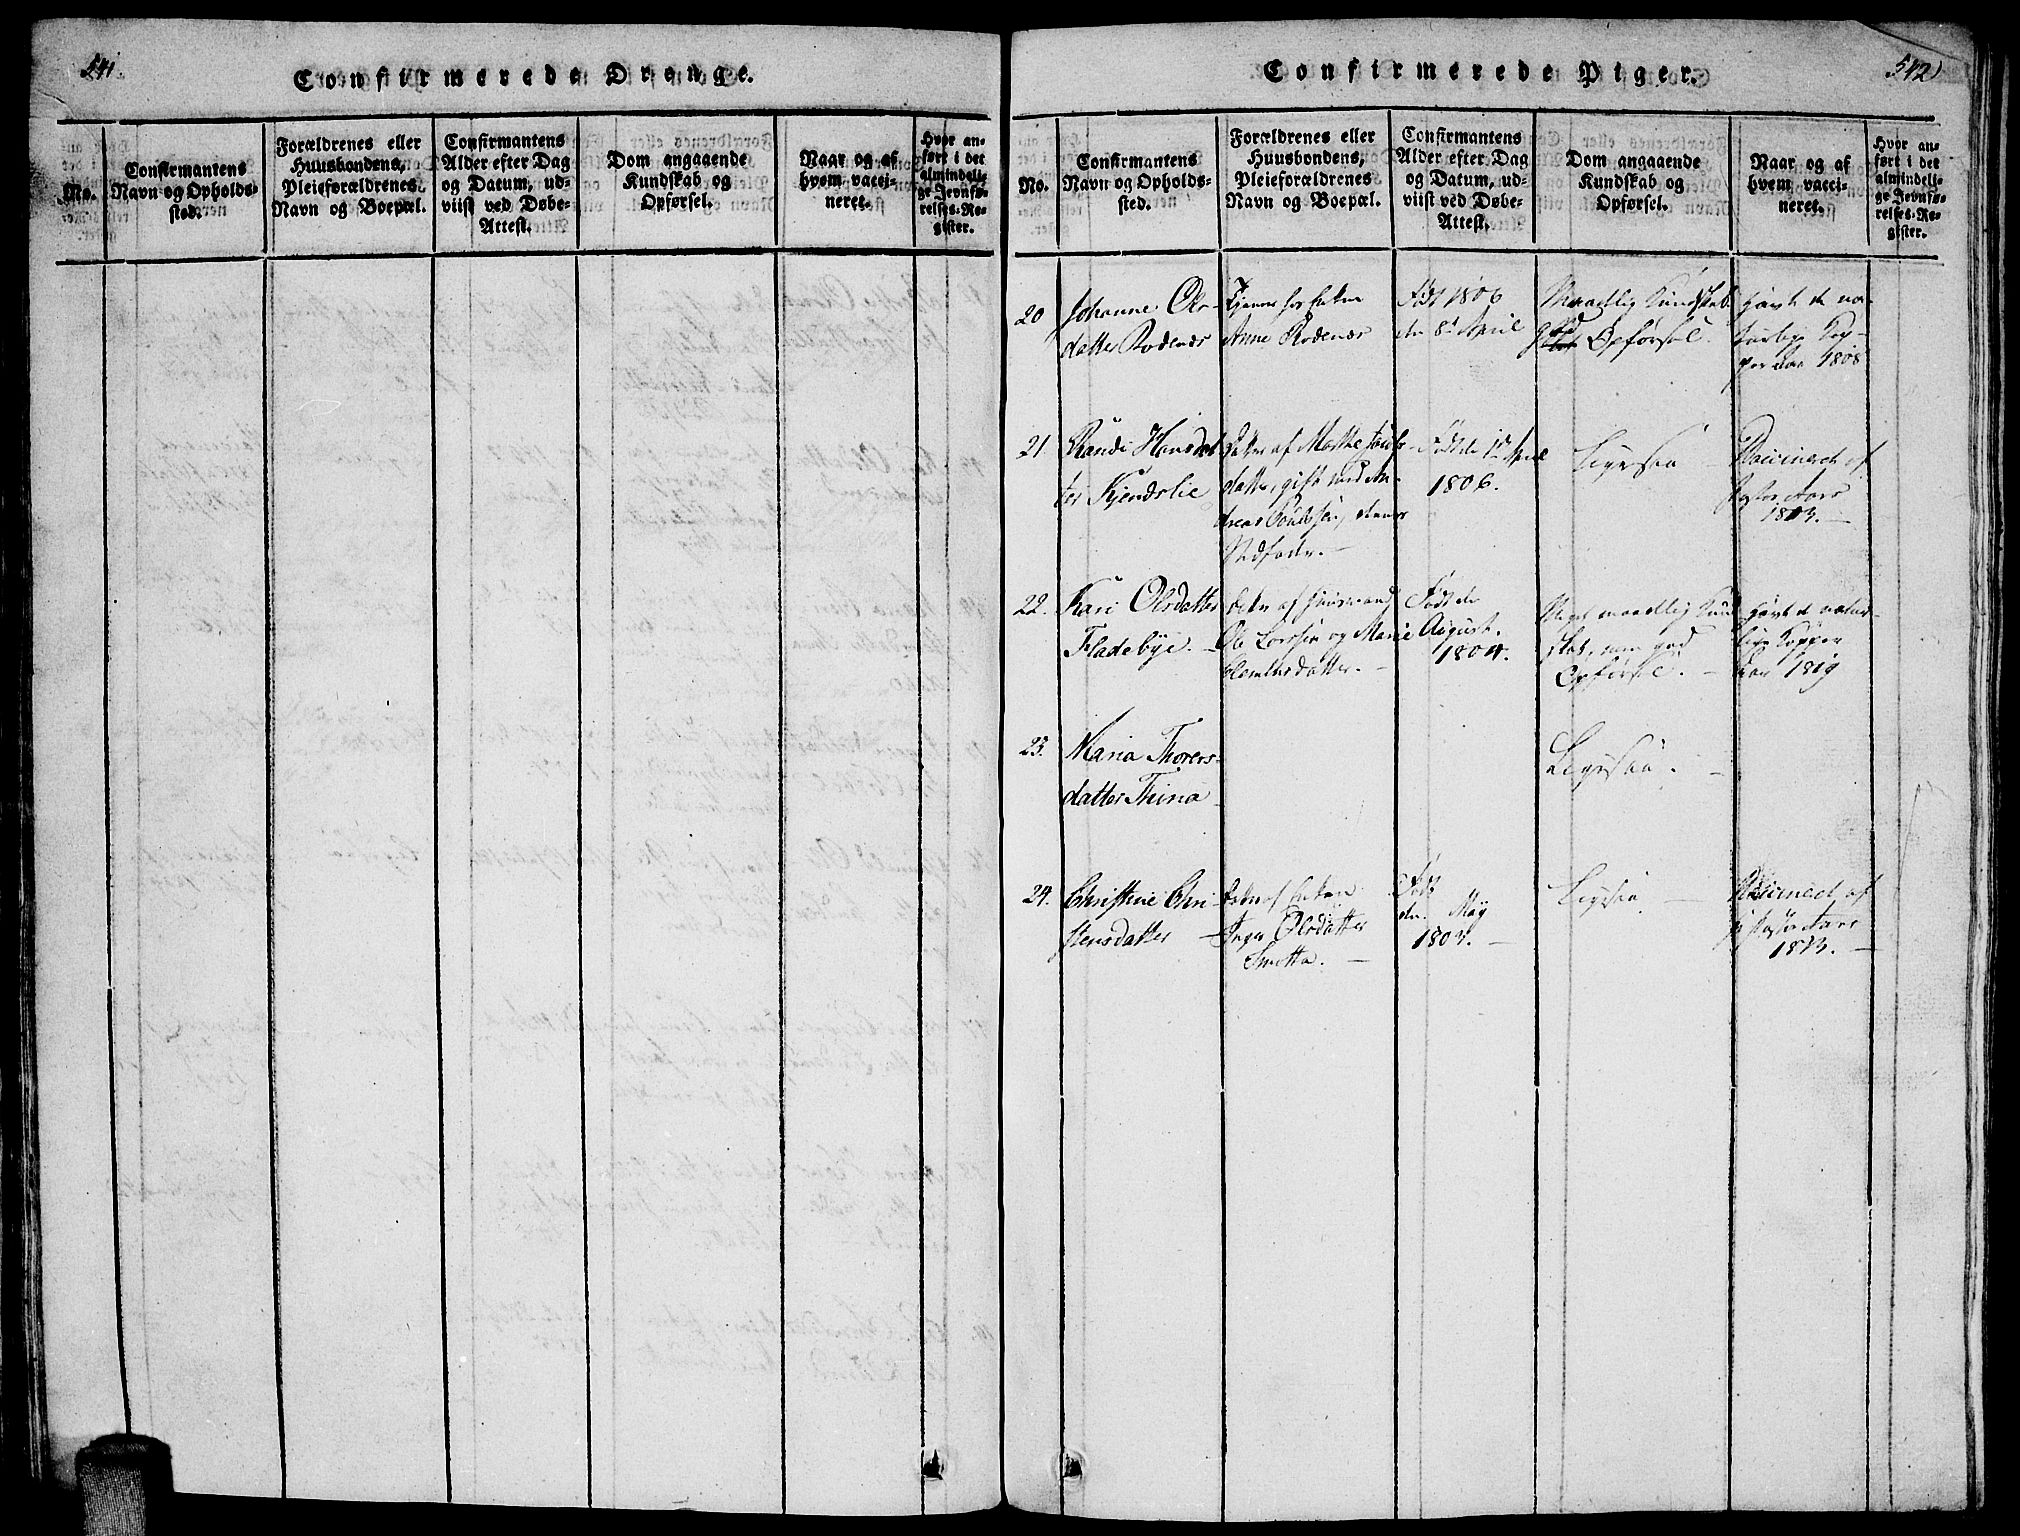 541.
Confirmerede Drenge.
No.
Confirmantens
Navn og Opholds-
sted.
Forældrenes eller
Huusbondens,
Pleieforældrenes
Navn og Boepæl.
Confirmantens
Alder efter Dag
og Datum, ud-
viist ved Døbe-
Attest.
Dom angaaende
Kundskab og
Opførsel.
Naar og af
hvem vacci-
neret.
Hvor an-
ført i det
almindeli-
ge Jevnfø-
relses-Re-
gister.
542
Confirmerede Piger.
No.
Confirmantens
Navn og Opholds-
sted.
Forældrenes eller
Huusbondens,
Pleieforældrenes
Navn og Boepæl.
Confirmantens
Alder efter Dag
og Datum, ud-
viist ved Døbe-
Attest.
Dom angaaende
Kundskab og
Opførsel.
Naar og af
hvem vacci-
neret.
Hvor an-
ført i det
almindeli-
ge Jevnfø-
relses-Re-
gister.
20
Johanne Ols-
datter Rodenæs
Tjener hos Enken
Anne Rodenæs
Født 1806
den 8de April
Maadelig Kundskab
god Opførsel.
Havt de na-
turlige Kop-
per Aar 1808
21
Randi Hansdat
ter Kjendslie
Datter af Marthe
datter, gift med An-
dreas Poulssen, dennes
Stedfader.
Født de 12 April
1806.
Ligesaa
Vaccineret af
Pastor Aars
1813.
22.
Kari Olsdatter
Fladebye.
Datter af Huusmand
Ole Larssen og Marie
Clemensdatter.
Født de
August.
1804.
Meget maadelig Kund
skab, men god
Opførsel.
Havt de natur-
lige Kopper
Aar 1819
23.
Maria Thorers-
datter Thina
Ligesaa.
24.
Christine Chri-
stensdatter
Datter af Enken
Inger Olsdatter
Smetta.
Født
den May
1803.
Ligesaa
Vaccineret af
Hr Pastor Aars
1813.